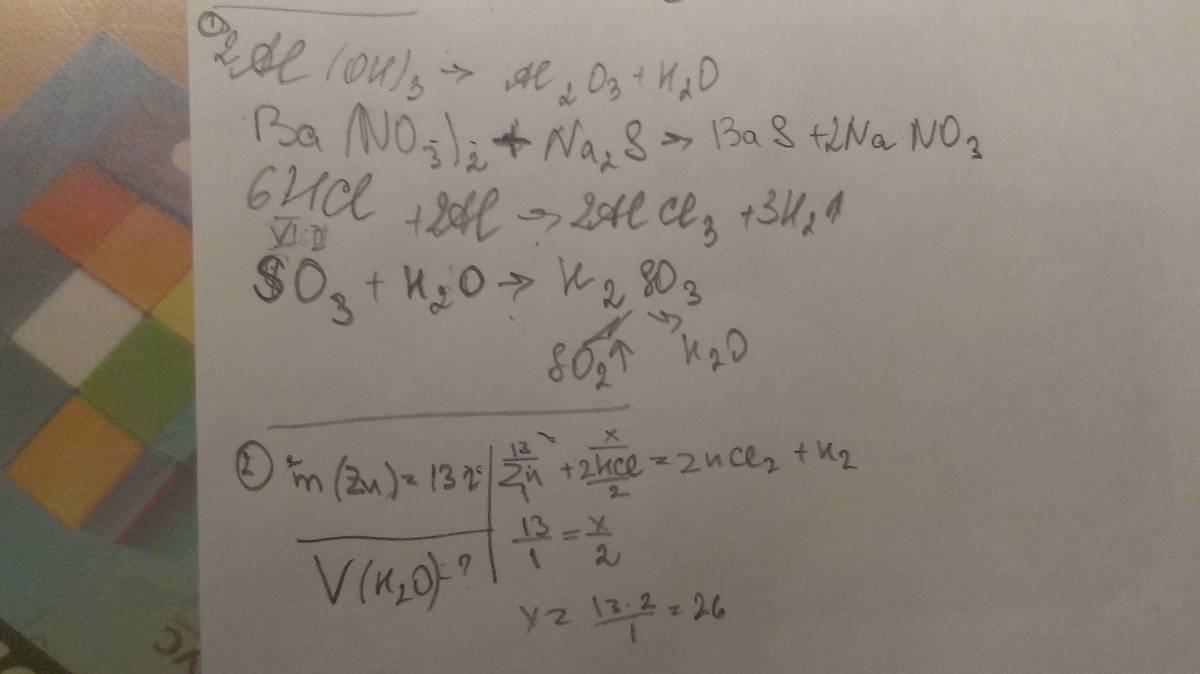 ①
2Al(OH)₃ → Al₂O₃ + H₂O
Ba(NO₃)₂ + Na₂S → BaS + 2NaNO₃
6HCl + 2Al → 2AlCl₃ + 3H₂↑
VI II
SO₃ + H₂O → H₂SO₃
SO₂↑ H₂O
② m(Zn) = 13г | 13/Zn/1 + x/2HCl/2 = ZnCl₂ + H₂
13/1 = x/2
V(H₂O) - ?
x = 13·2/1 = 26